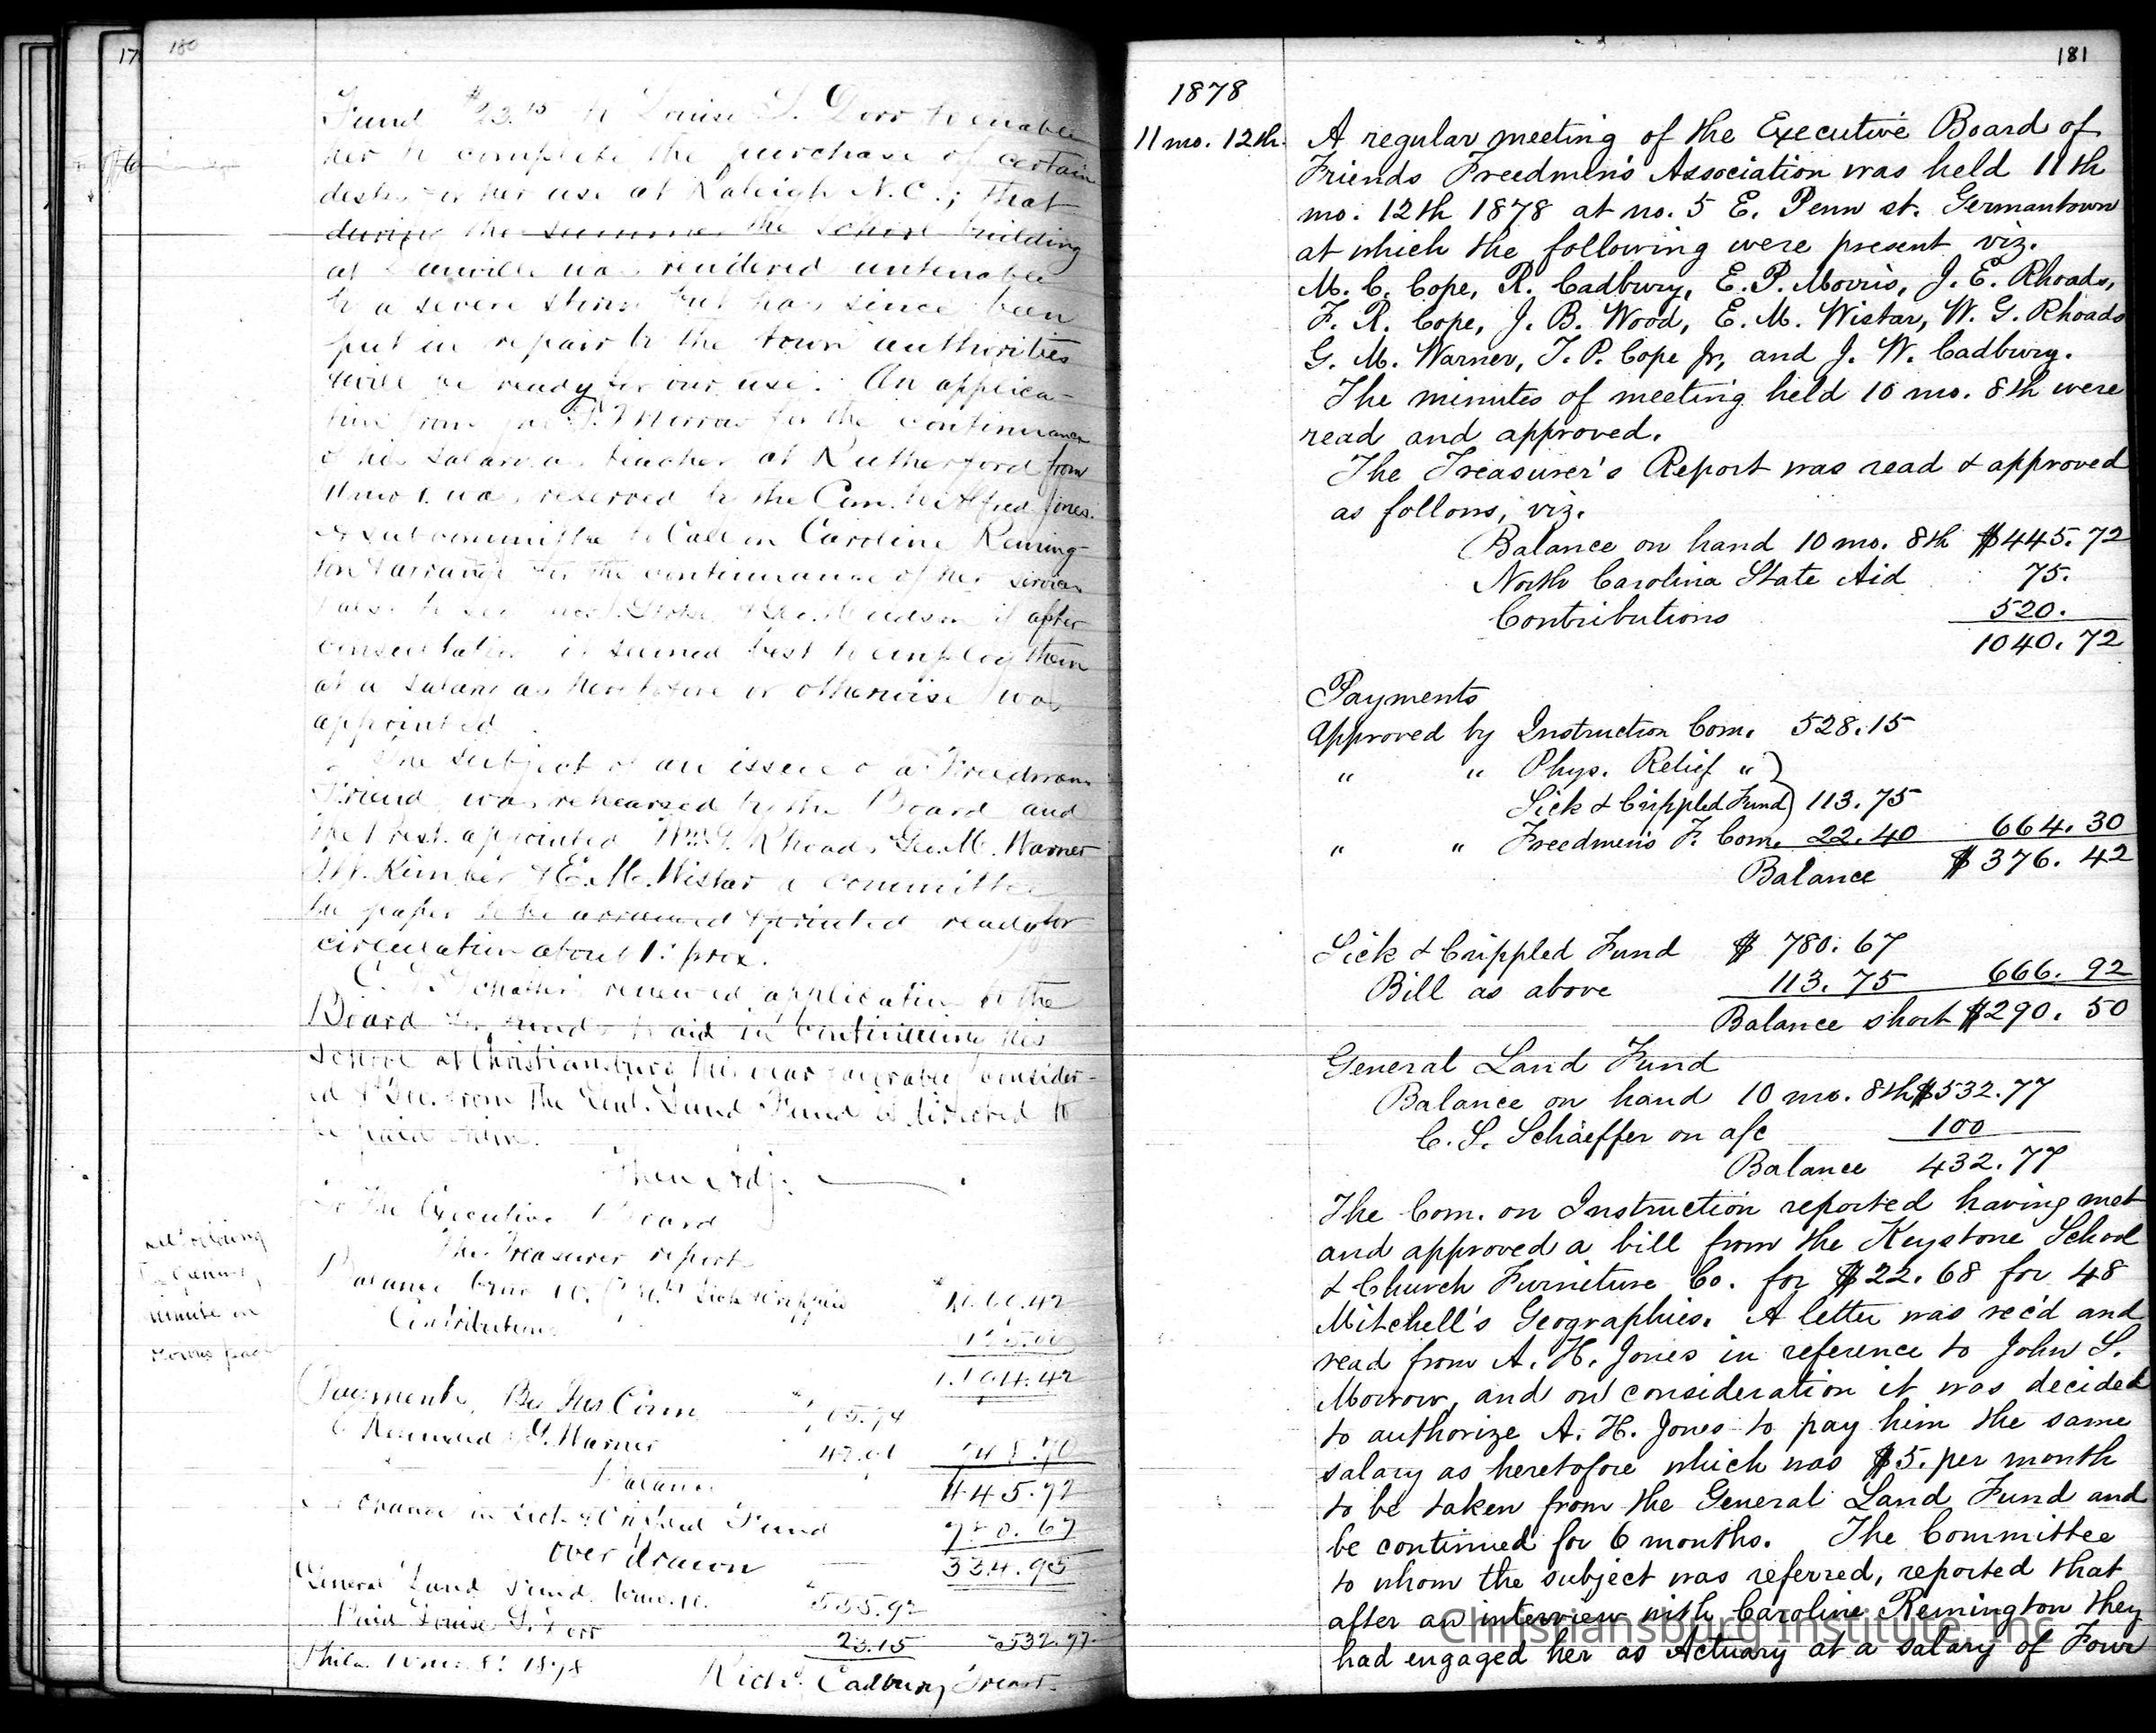 180
Fund $23.15 to Louise S. Dorr to enable
her to complete the purchase of certain
desks for her use at Raleigh N.C.; that
during the summer the school building
at Danville was rendered untenable
by a severe storm but has since been
put in repair by the town authorities
will be ready for our use. An applica-
tion from for the continuance
of his salary as teacher at Rutherford from
was referred to the Com. to Alfred Jones.
A subcommittee to Call on Caroline Reming-
ton & arrange for the continuance of her services
if after
consultation it seemed best to employ them
at a salary as heretofore or otherwise was
appointed.
The subject of an issue of a Freedman's
Friend was rehearsed by the Board and
the Prest. appointed Wm. G. Rhoads Geo. M. Warner
Kimber & E. M. Wistar a committee
the paper to be arranged & printed ready for
circulation about 1st prox.
C. S. Schaeffer's renewed application to the
Board for funds to aid in continuing his
school at Christiansburg this year favorably consider-
ed & from the Genl. Land Fund is directed to
be paid him.
Then Adj.
To the Executive Board
The Treasurer reports
Balance
Contributions
Payments, By Ins Com
G. Warner 47.
Balance 445.72
in Sick & Crippled Fund 780.67
over drawn 334.95
General Land Fund 555.92
Paid Louise S. Dorr 23.15 532.77
Phila. 1878
Richd. Cadbury Treast.
minute on
page
17
181
1878
11 mo. 12th. A regular meeting of the Executive Board of
Friends Freedmen's Association was held 11th
mo. 12th 1878 at no. 5 E. Penn st. Germantown
at which the following were present viz.
M. C. Cope, R. Cadbury, E. P. Morris, J. E. Rhoads,
F. R. Cope, J. B. Wood, E. M. Wistar, W. G. Rhoads
G. M. Warner, T. P. Cope Jr, and J. W. Cadbury.
The minutes of meeting held 10 mo. 8th were
read and approved.
The Treasurer's Report was read & approved
as follows, viz.
Balance on hand 10 mo. 8th $445.72
North Carolina State Aid 75.
Contributions 520.
1040.72
Payments
Approved by Instruction Com. 528.15
" " Phys. Relief " )
Sick & Crippled Fund) 113.75
" " Freedmen's F. Com. 22.40 664.30
Balance $376.42
Sick & Crippled Fund $780.67
Bill as above 113.75 666.92
Balance short $290.50
General Land Fund
Balance on hand 10 mo. 8th $532.77
C. S. Schaeffer on a/c 100
Balance 432.77
The Com. on Instruction reported having met
and approved a bill from the Keystone School
& Church Furniture Co. for $22.68 for 48
Mitchell's Geographies. A letter was rec'd and
read from A. H. Jones in reference to John S.
Morrow, and on consideration it was decided
to authorize A. H. Jones to pay him the same
salary as heretofore which was $5. per month
to be taken from the General Land Fund and
be continued for 6 months. The Committee
to whom the subject was referred, reported that
after an interview with Caroline Remington they
had engaged her as Actuary at a salary of Four
Christiansburg Institute, Inc